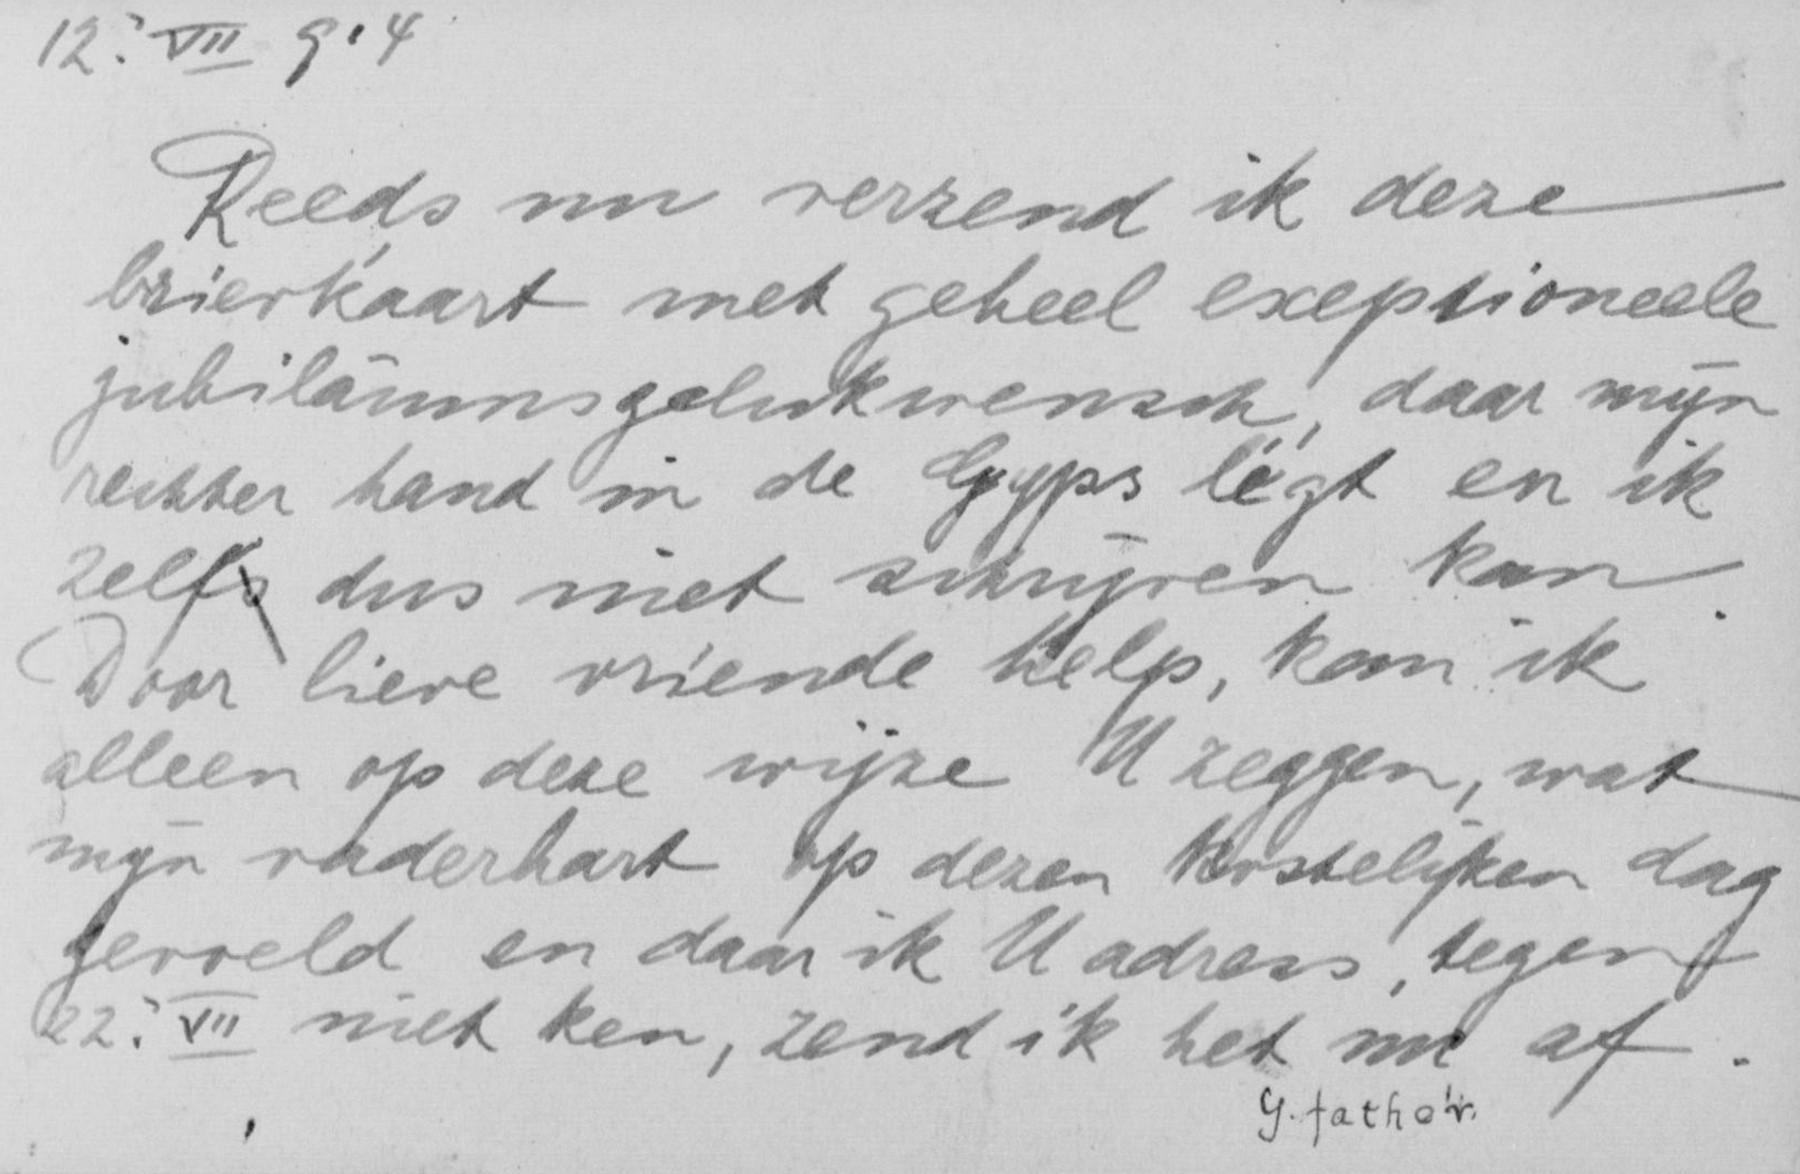 12. VII 9.4
Reeds nu verzend ik deze
brievkaart met geheel exeptioneele
jubiläumsgelukwensch, daar mijn
rechter hand in de Gyps légt en ik
zelfs dus niet schrijven kan.
Door lieve vriende help, kan ik
alleen op deze wijze U zeggen, wat
mijn vaderhart op dezen kostelijken dag
gevoeld en daar ik U adress, tegen
22. VII niet ken, zend ik het nu af.
Y. father.